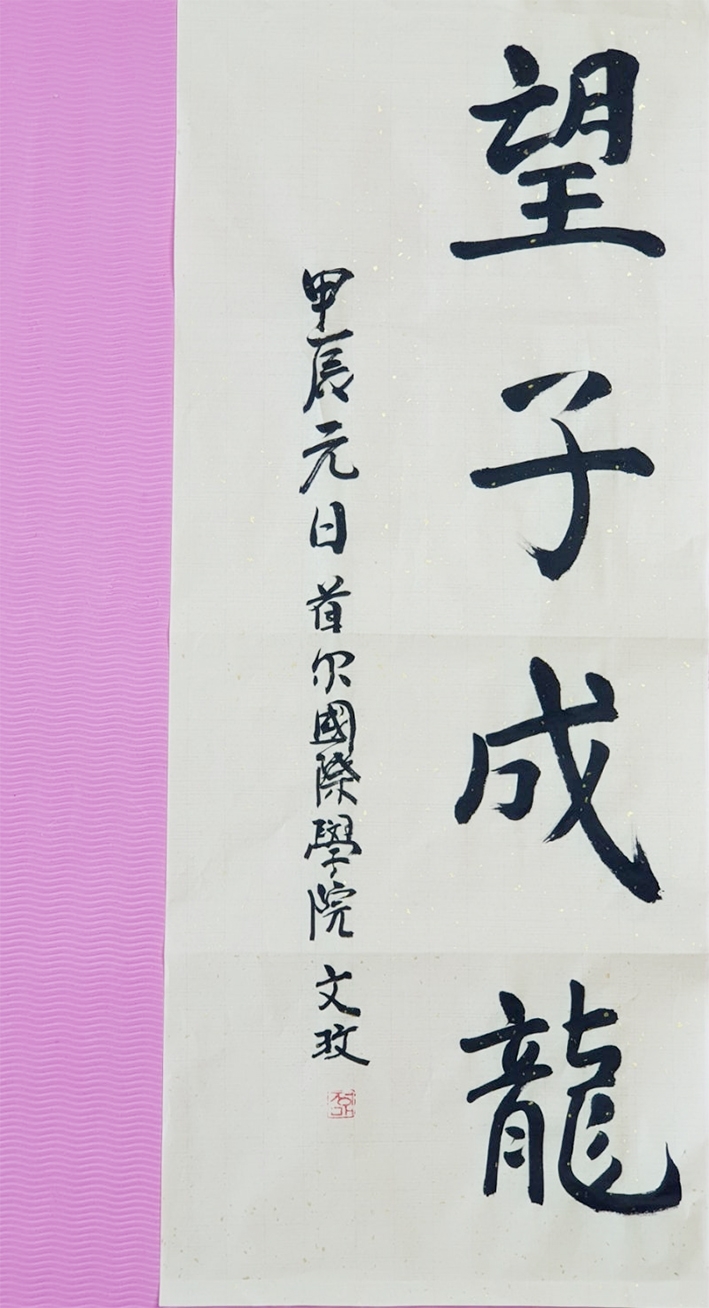 望子成龍
甲辰元日首尔國際學院 文玫